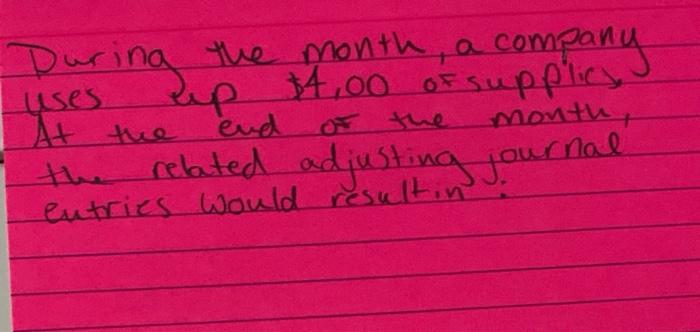 During the month, a company
uses up $4,00 of supplies
At the end of the month,
the related adjusting journal
entries would result in :